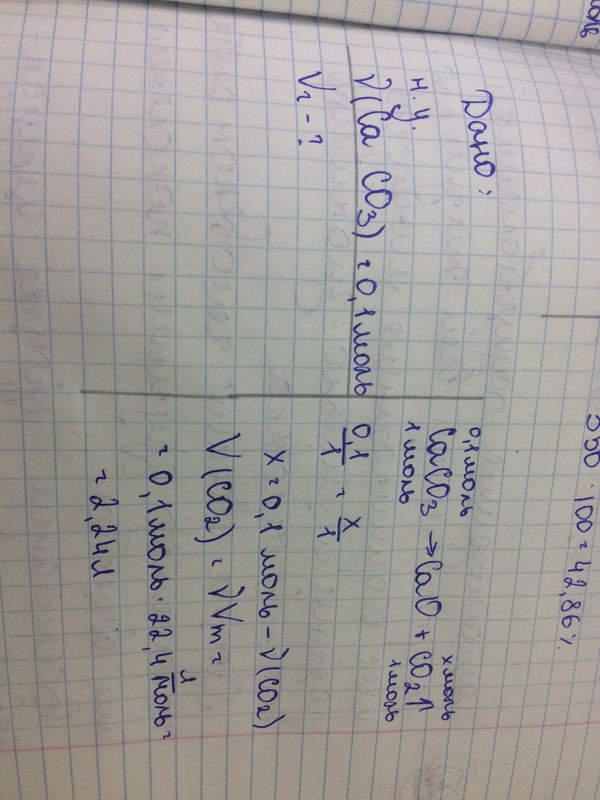 моль
550 · 100 = 42,86%
Дано:
н.у.
ν(CaCO3) = 0,1 моль
Vг - ?
0,1 моль x моль
CaCO3 → CaO + CO2↑
1 моль 1 моль
0,1/1 = x/1
x = 0,1 моль - ν(CO2)
V(CO2) = νVm =
= 0,1 моль · 22,4 л/моль =
= 2,24 л